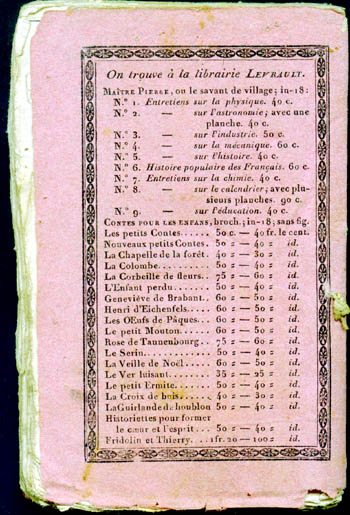 On trouve à la librairie LEVRAULT.
MAÎTRE PIERRE, ou le savant de village; in-18:
N.° 1. Entretiens sur la physique. 40 c.
N.° 2. — sur l'astronomie; avec une
planche. 40 c.
N.° 3. — sur l'industrie. 50 c.
N.° 4. — sur la mécanique. 60 c.
N.° 5. — sur l'histoire. 40 c.
N.° 6. Histoire populaire des Français. 60 c.
N.° 7. Entretiens sur la chimie. 40 c.
N.° 8. — sur le calendrier; avec plu-
sieurs planches. 90 c.
N.° 9. — sur l'éducation. 40 c.
CONTES POUR LES ENFANS, broch.; in-18; sans fig.
Les petits Contes..... 50 c. — 40 fr. le cent.
Nouveaux petits Contes. 50 = — 40 = id.
La Chapelle de la forêt. 40 = — 30 = id.
La Colombe........ 50 = — 40 = id.
La Corbeille de fleurs.. 75 = — 60 = id.
L'Enfant perdu...... 50 = — 40 = id.
Geneviève de Brabant. 60 = — 50 = id.
Henri d'Eichenfels.... 60 = — 50 = id.
Les OEufs de Pâques... 60 = — 50 = id.
Le petit Mouton..... 60 = — 50 = id.
Rose de Tannenbourg.. 75 = — 60 = id.
Le Serin.......... 50 = — 40 = id.
La Veille de Noël.... 60 = — 50 = id.
Le Ver luisant...... 35 = — 25 = id.
Le petit Ermite...... 50 = — 40 = id.
La Croix de bois..... 40 = — 30 = id.
La Guirlande de houblon 50 = — 40 = id.
Historiettes pour former
le cœur et l'esprit... 50 = — 40 = id.
Fridolin et Thierry... 1 fr. 20 — 100 = id.